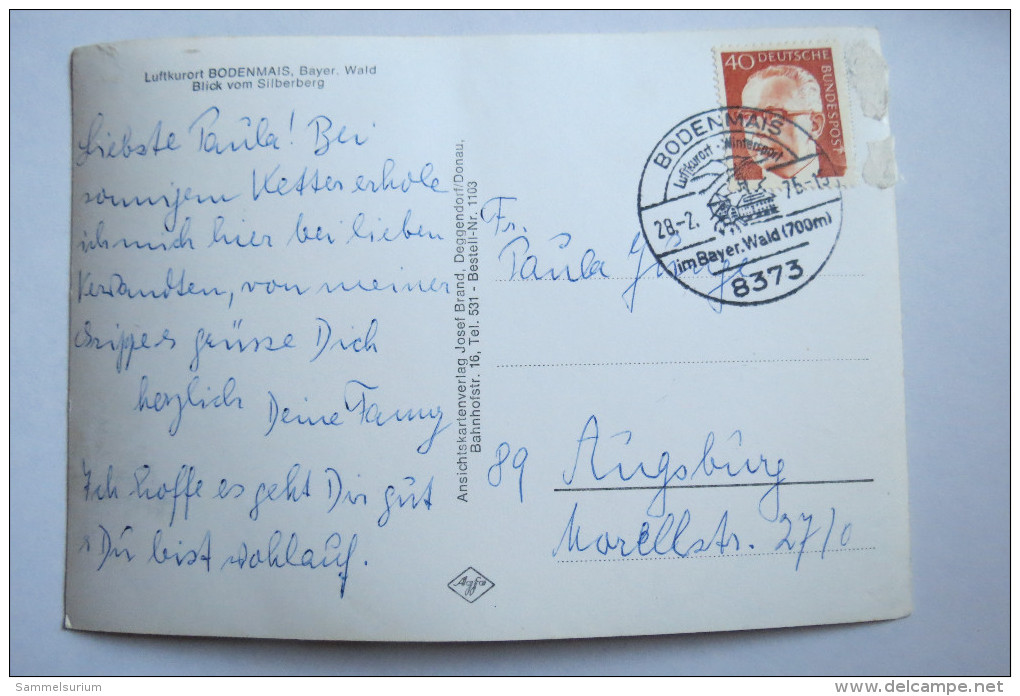 Luftkurort BODENMAIS, Bayer. Wald
Blick vom Silberberg
Liebste Paula! Bei
sonnigem Wetter erhole
ich mich hier bei lieben
Verwandten, von meiner
Grippe es grüsse Dich
herzlich Deine Fanny
Ich hoffe es geht Dir gut
Du bist wohlauf.
Ansichtskartenverlag Josef Brand, Deggendorf/Donau,
Bahnhofstr. 16, Tel. 531 - Bestell-Nr. 1103
Agfa
40 DEUTSCHE BUNDESPOST
BODENMAIS
Luftkurort - Wintersport
28.-2. 76.-15
im Bayer. Wald (700m)
8373
Fr.
Paula
89 Augsburg
Morellstr. 27/0
Sammelsurium
delcampe.net